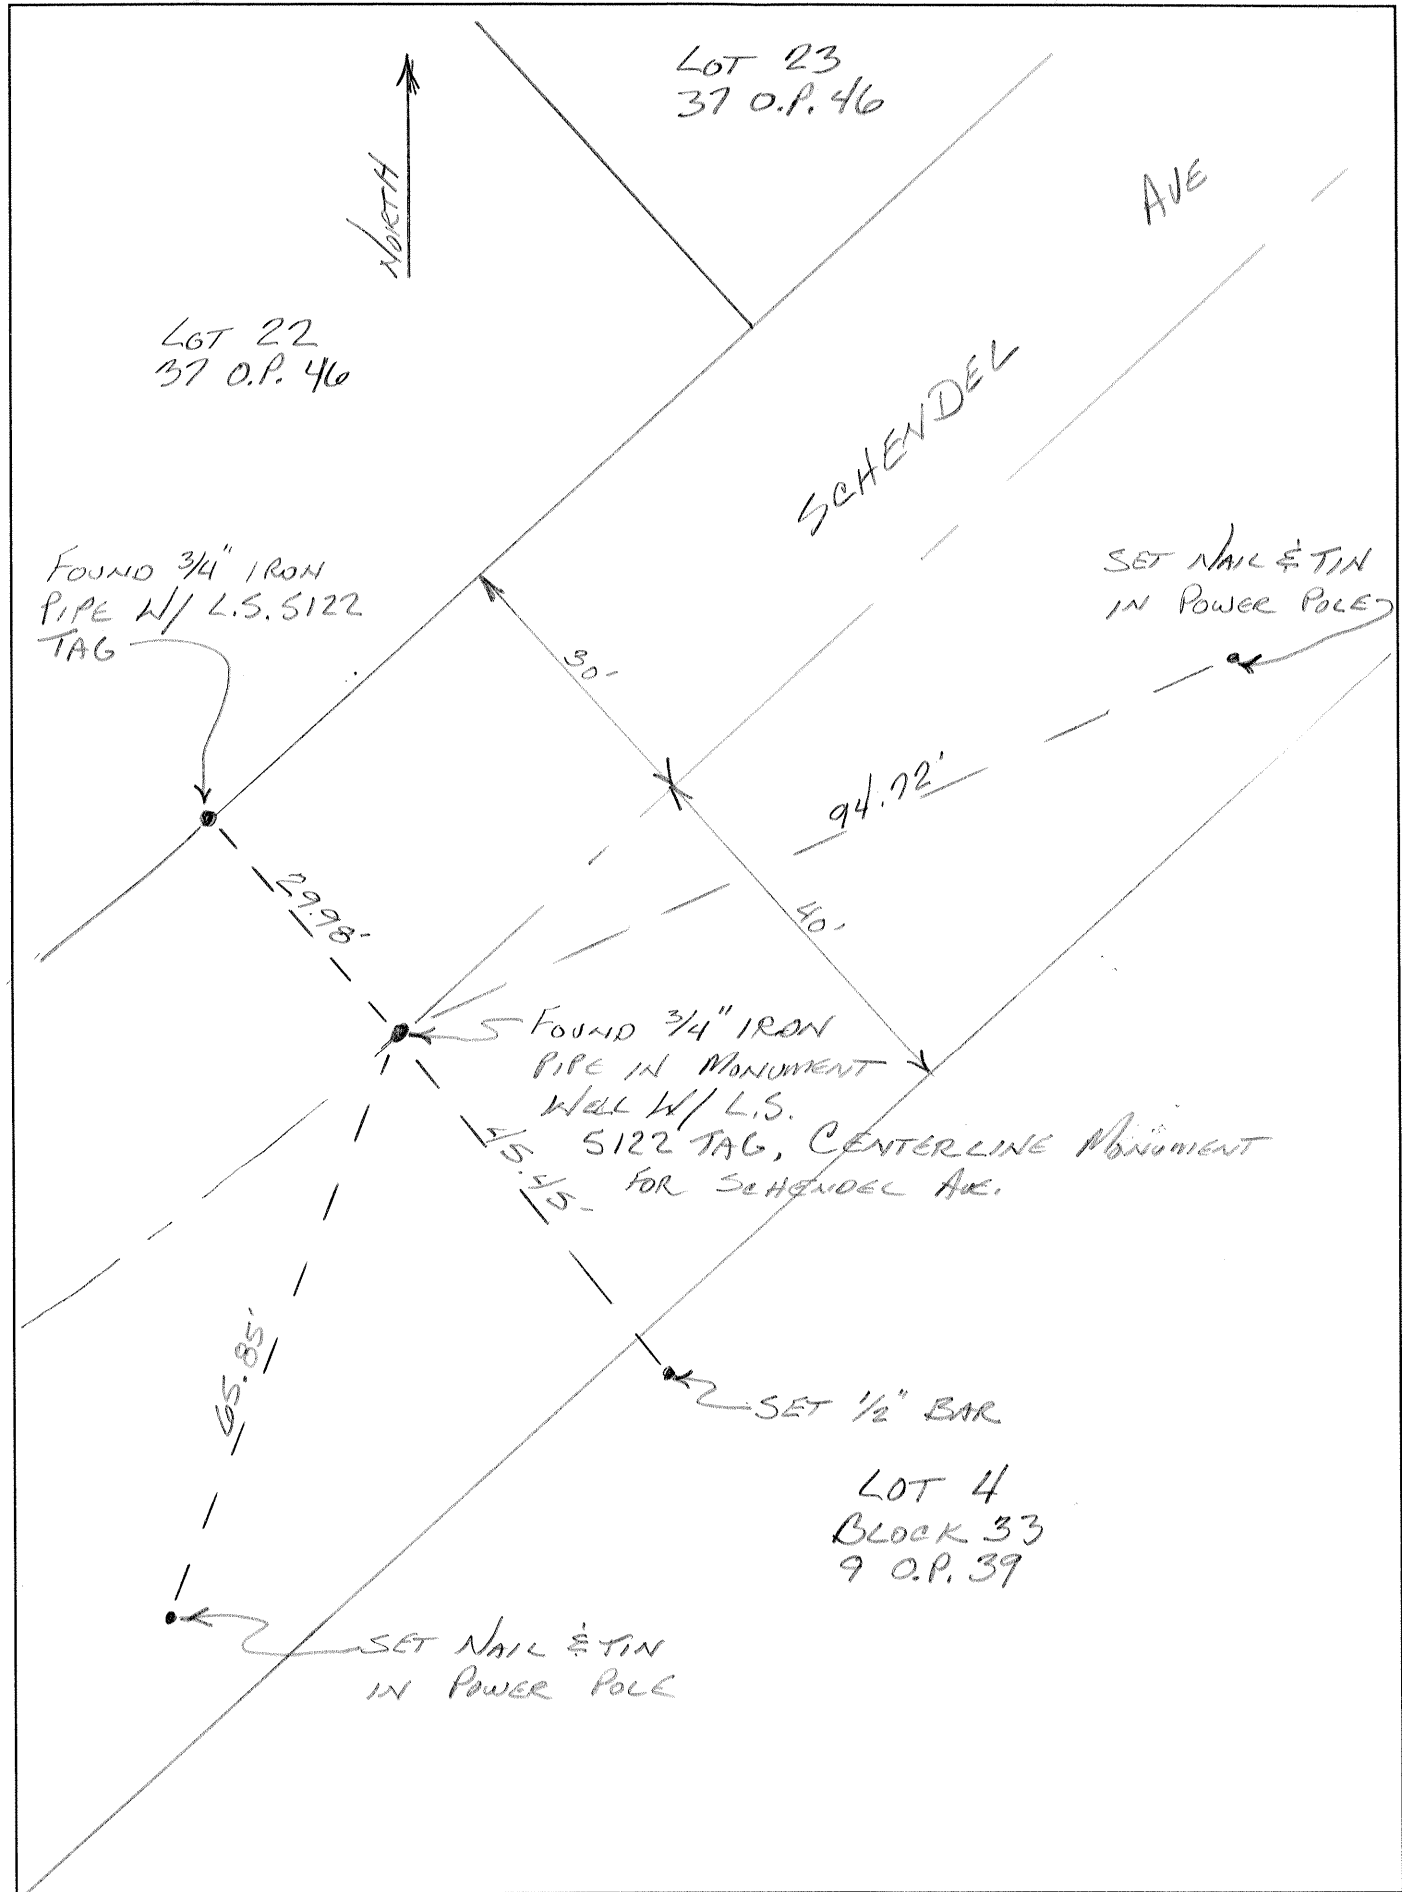 LOT 23
37 O.P. 46
NORTH
AVE
LOT 22
37 O.P. 46
SCHENDEL
FOUND 3/4" IRON
PIPE W/ L.S. 5122
TAG
SET NAIL & TIN
IN POWER POLE
30'
94.72'
29.98'
40'
FOUND 3/4" IRON
PIPE IN MONUMENT
WELL W/ L.S.
5122 TAG, CENTERLINE MONUMENT
FOR SCHENDEL AVE.
45.45'
65.85'
SET 1/2" BAR
LOT 4
BLOCK 33
9 O.P. 39
SET NAIL & TIN
IN POWER POLE